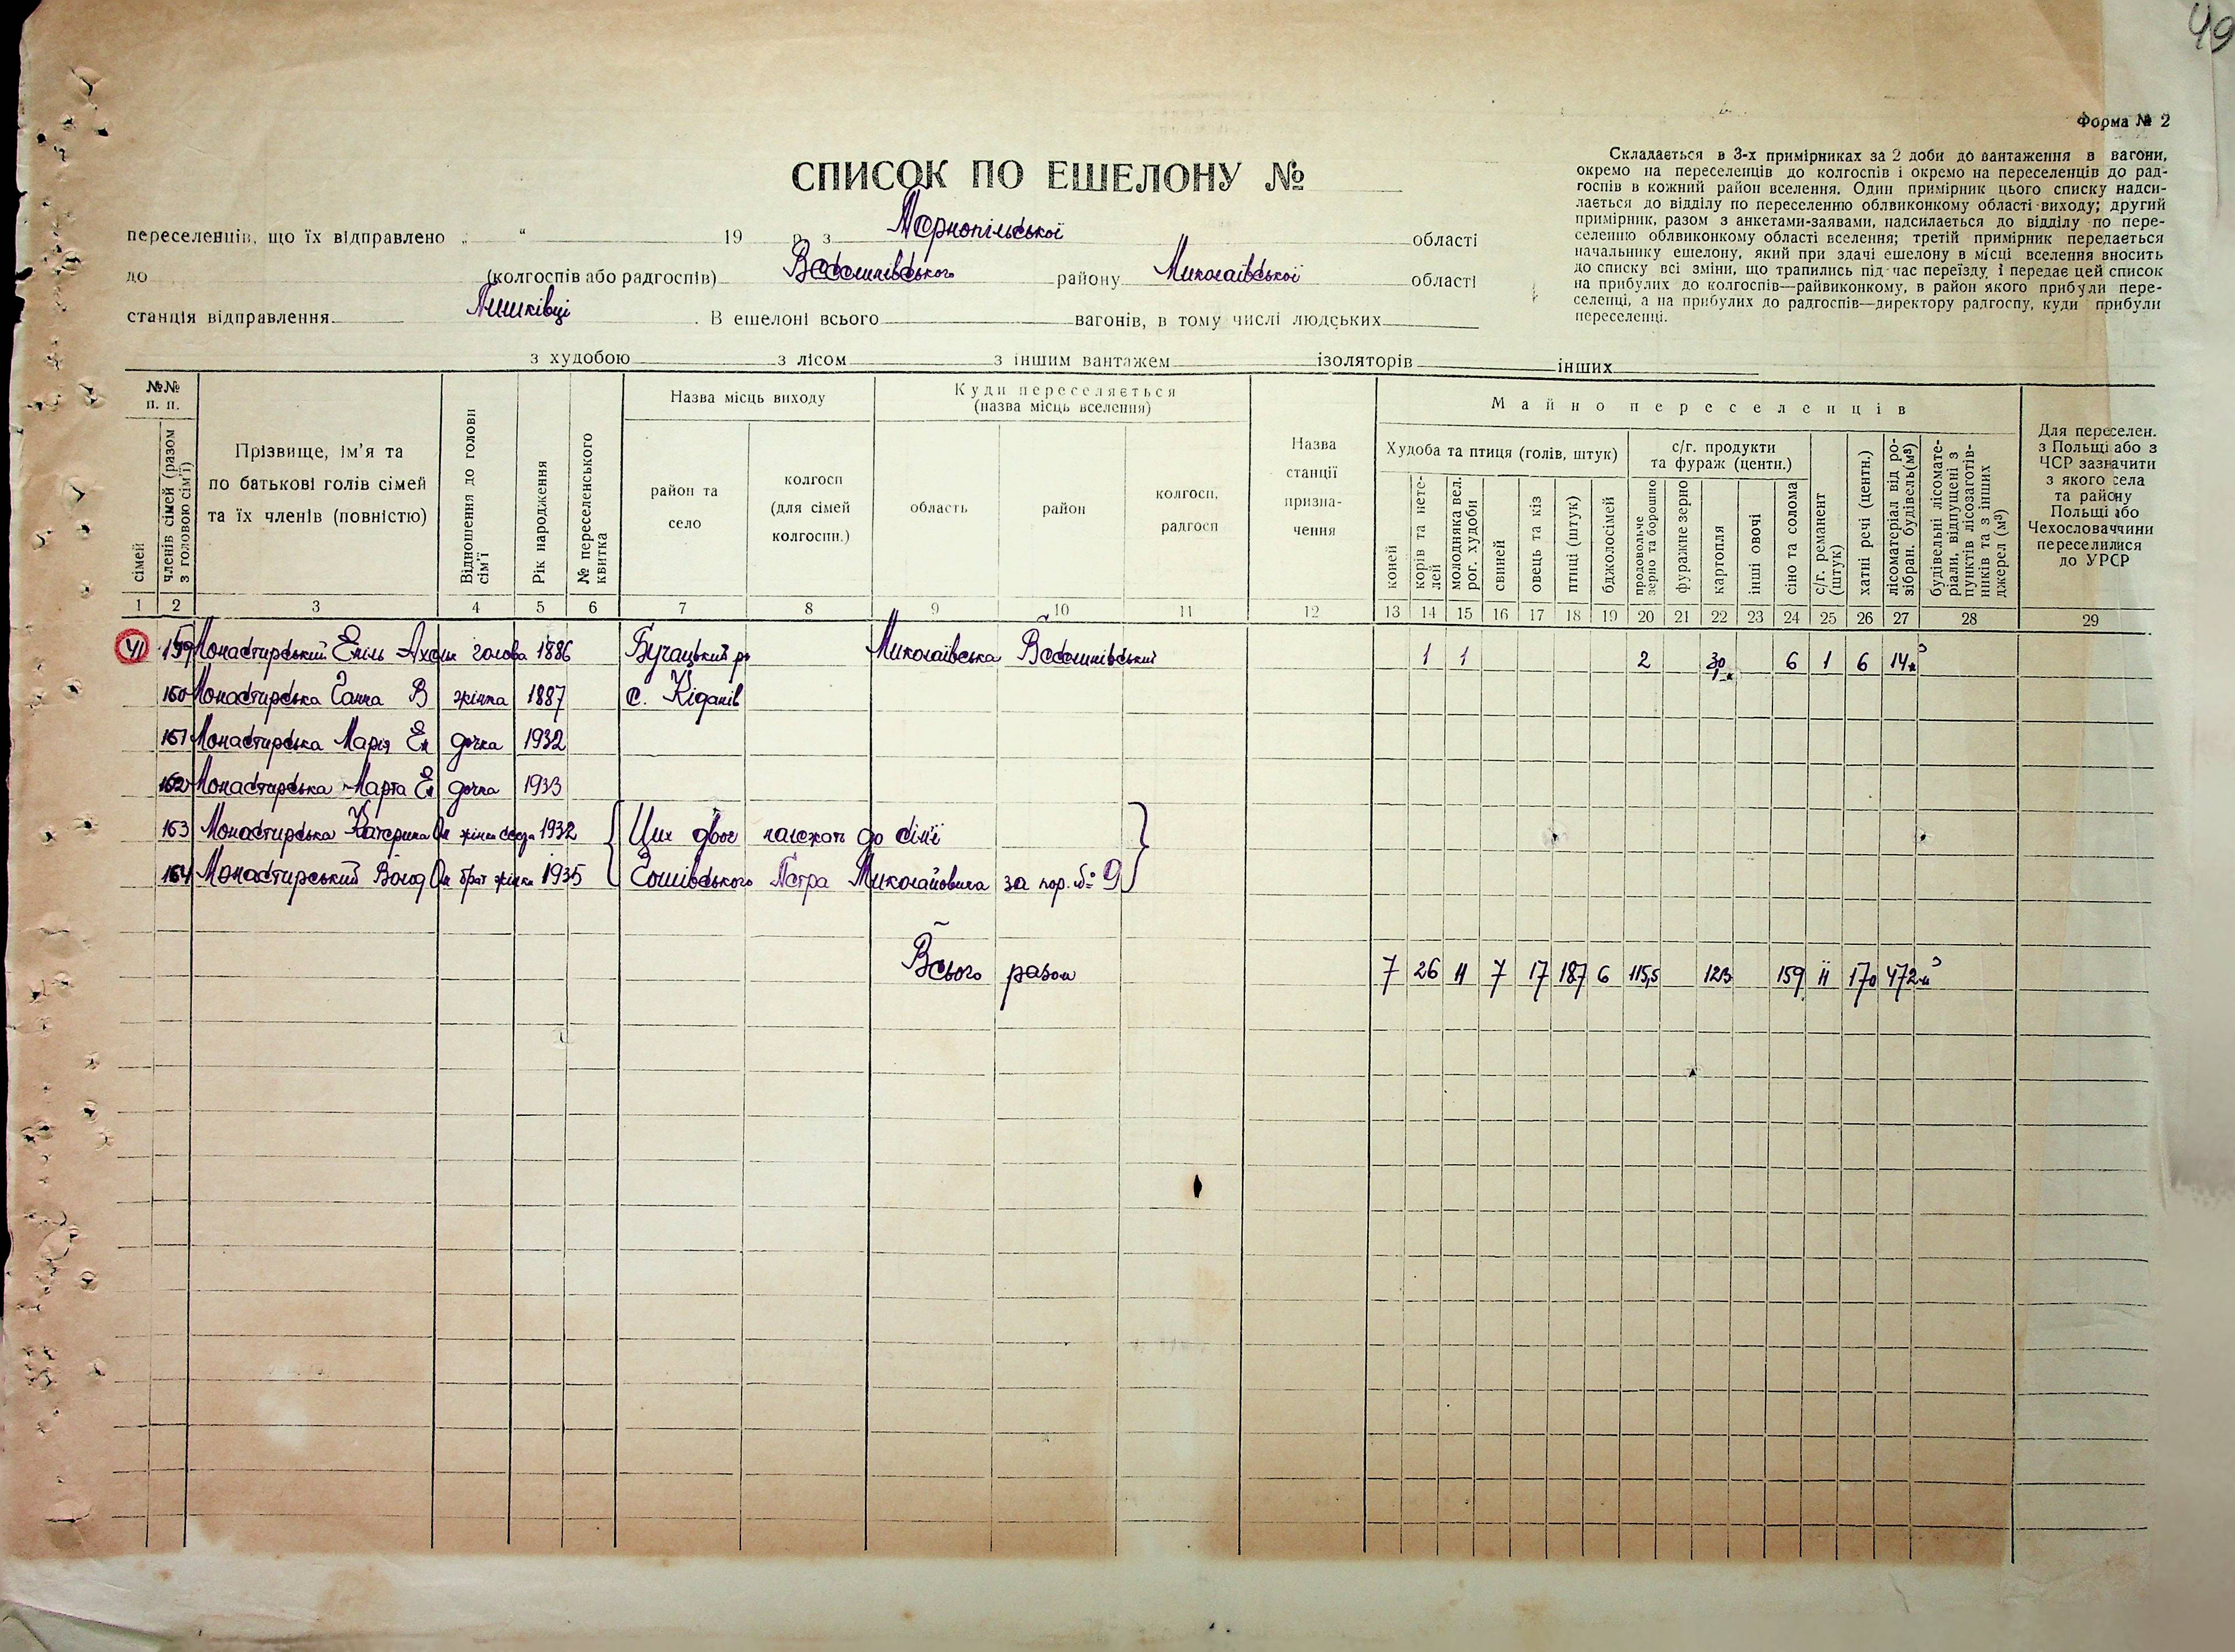 49
Форма № 2
СПИСОК ПО ЕШЕЛОНУ №
Складається в 3-х примірниках за 2 доби до вантаження в вагони,
окремо на переселенців до колгоспів і окремо на переселенців до рад-
госпів в кожний район вселення. Один примірник цього списку надси-
лається до відділу по переселенню облвиконкому області виходу; другий
примірник, разом з анкетами-заявами, надсилається до відділу по пере-
селенню облвиконкому області вселення; третій примірник передається
начальнику ешелону, який при здачі ешелону в місці вселення вносить
до списку всі зміни, що трапились під час переїзду, і передає цей список
на прибулих до колгоспів—райвиконкому, в район якого прибули пере-
селенці, а на прибулих до радгоспів—директору радгоспу, куди прибули
переселенці.
переселенців, що їх відправлено „ “ 19 р. з Тернопільської області
до (колгоспів або радгоспів) Веселинівського району Миколаївської області
станція відправлення Пишківці . В ешелоні всього вагонів, в тому числі людських
з худобою з лісом з іншим вантажем ізоляторів інших
№№ п. п.
сімей
членів сімей (разом з головою сім'ї)
Прізвище, ім'я та
по батькові голів сімей
та їх членів (повністю)
Відношення до голови сім'ї
Рік народження
№ переселенського квитка
Назва місць виходу
район та село
колгосп (для сімей колгоспн.)
Куди переселяється
(назва місць вселення)
область
район
колгосп, радгосп
Назва станції призна-чення
Майно переселенців
Худоба та птиця (голів, штук)
коней
корів та нете-лей
молодняка вел. рог. худоби
свиней
овець та кіз
птиці (штук)
бджолосімей
с/г. продукти
та фураж (центн.)
продовольче зерно та борошно
фуражне зерно
картопля
інші овочі
сіно та солома
с/г. реманент (штук)
хатні речі (центн.)
лісоматеріал від ро-зібран. будівель(м³)
будівельні лісомате-ріали, відпущені з пунктів лісозаготів-ників та з інших джерел (м³)
Для переселен.
з Польщі або з
ЧСР зазначити
з якого села
та району
Польщі або
Чехословаччини
переселилися
до УРСР
1 2 3 4 5 6 7 8 9 10 11 12 13 14 15 16 17 18 19 20 21 22 23 24 25 26 27 28 29
41 159 Монастирський Еміль голова 1886 Бучацький р Миколаївська Веселинівський 1 1 2 30 6 1 6 14м³
160 Монастирська Ганна В жінка 1887 с. Кіданів
161 Монастирська Марія Ем дочка 1932
162 Монастирська Марта Ем дочка 1933
163 Монастирська Катерина Ом жінки сестра 1932 Цих двоє належать до сім'ї
164 Монастирський Волод Ом брат жінки 1935 Петра Миколайовича за пор. № 9
Всього разом 7 26 11 7 17 187 6 115,5 123 159 11 170 472м³